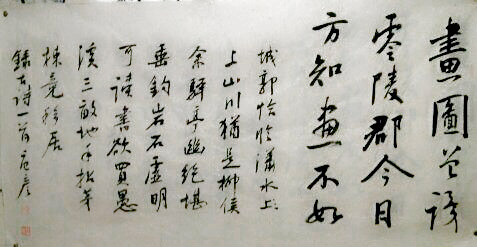 畫圖曾識
零陵郡今日
方知畫不如
城郭恰臨瀟水上
上山川猶是柳侯
余驛亭幽絕堪
垂釣岩石虛明
可讀書欲買愚
溪三畝地手拈茅
棟竟移居
錄古詩一首